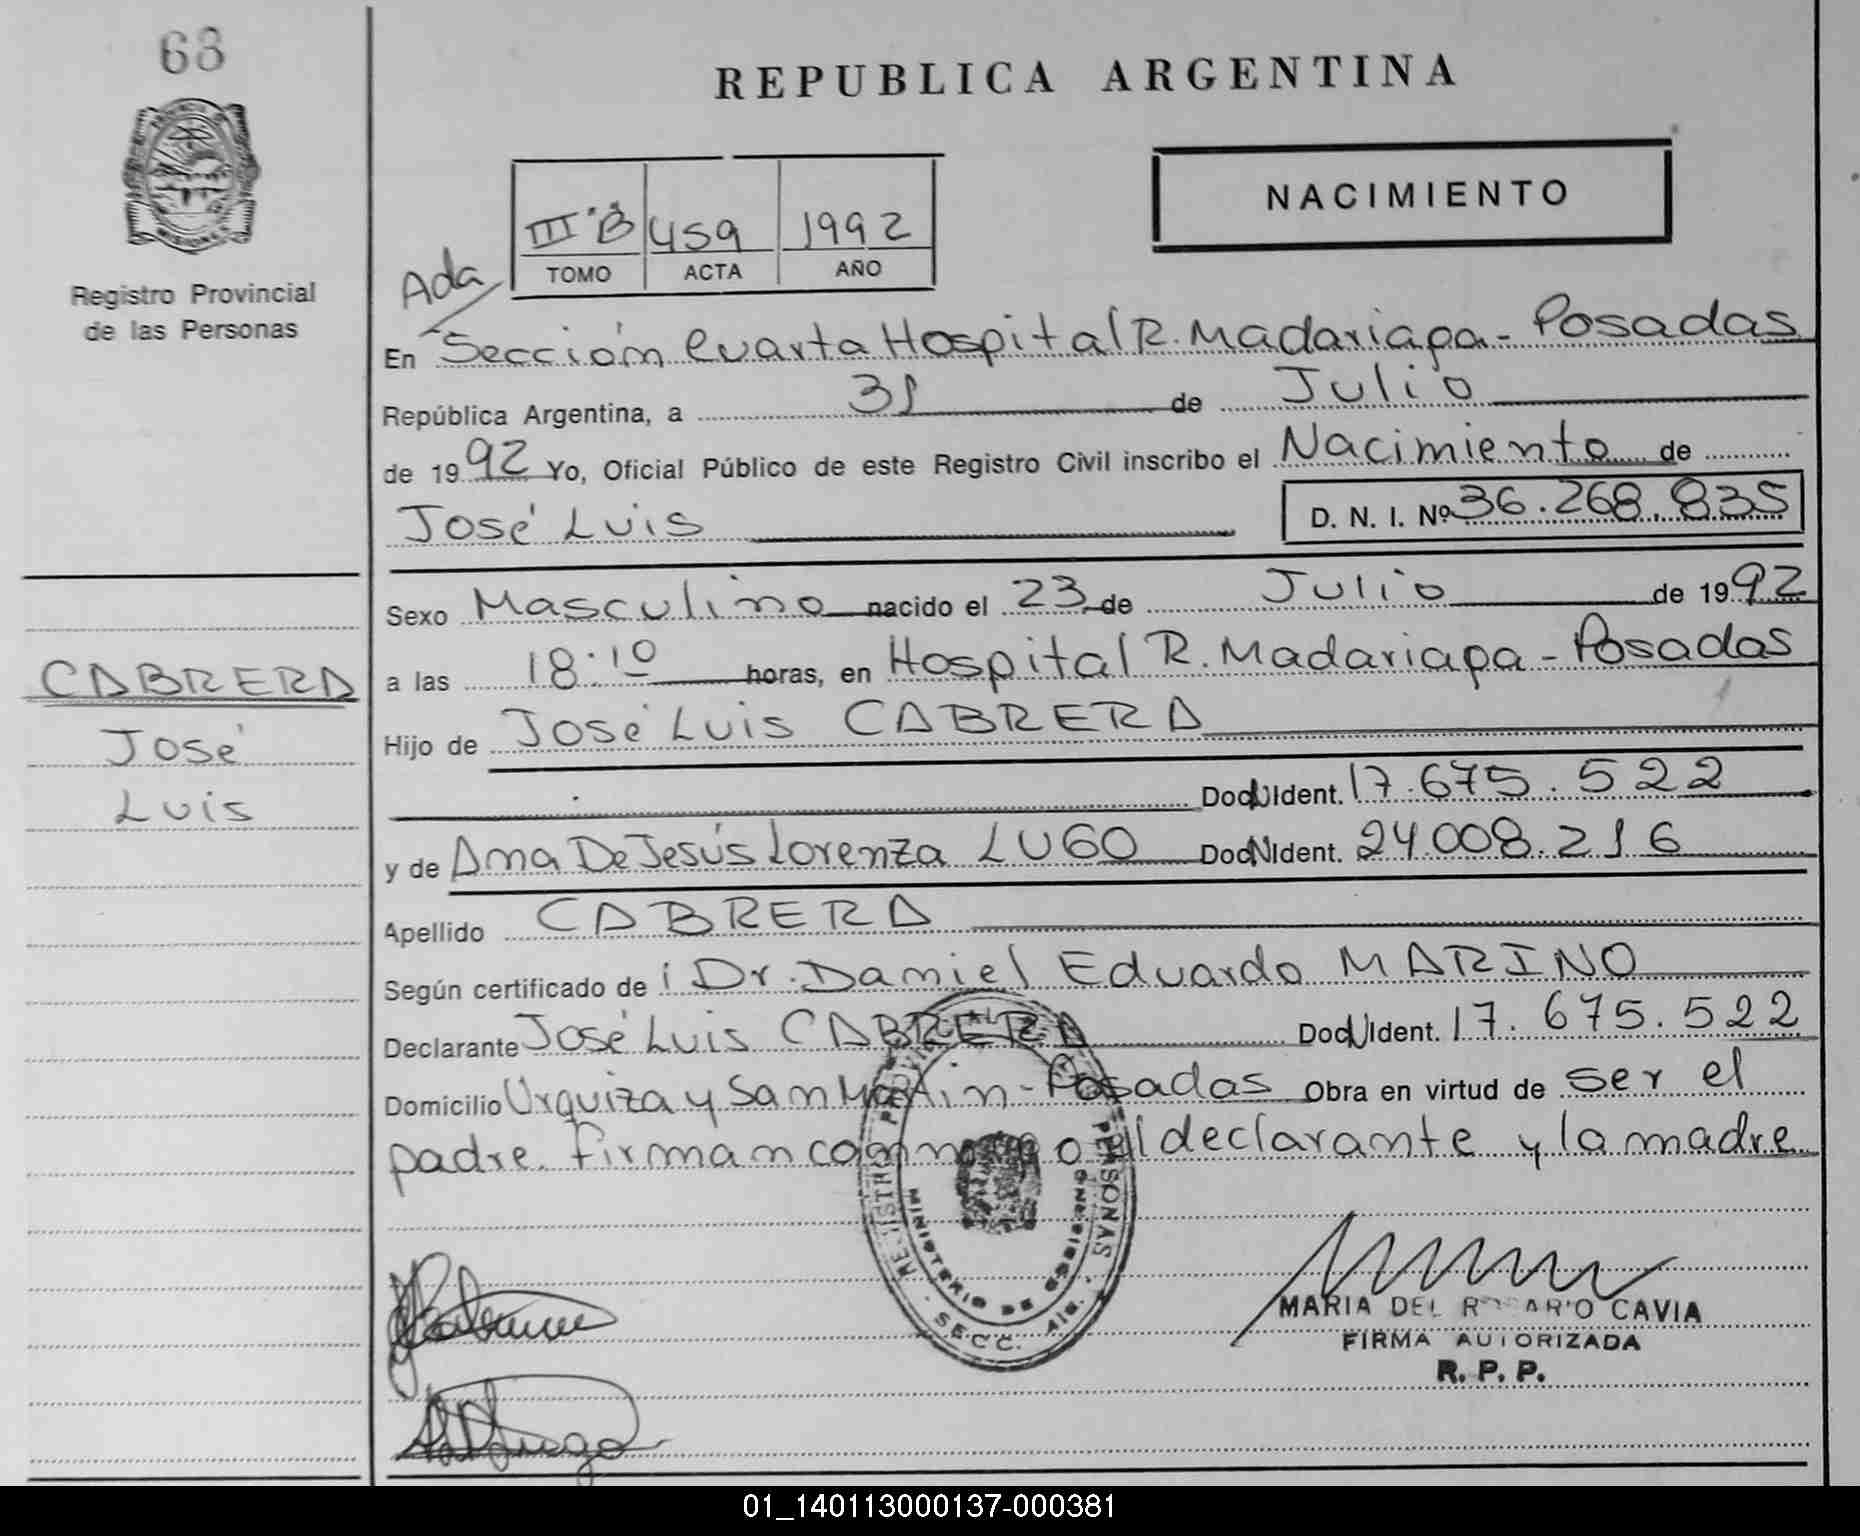 68
REPUBLICA ARGENTINA
NACIMIENTO
III°B 459 1992
TOMO ACTA AÑO
Registro Provincial
de las Personas
Ada
En Sección Cuarta Hospital R. Madariaga - Posadas
República Argentina, a 31 de Julio
de 1992 Yo, Oficial Público de este Registro Civil inscribo el Nacimiento de
José Luis D. N. I. Nº 36.268.835
Sexo Masculino nacido el 23 de Julio de 1992
a las 18:10 horas, en Hospital R. Madariaga - Posadas
CABRERA
José
Luis
Hijo de José Luis CABRERA
Doc N Ident. 17.675.522
y de Ana De Jesús Lorenza LUGO Doc N Ident. 24.008.216
Apellido CABRERA
Según certificado de: Dr. Daniel Eduardo MARINO
Declarante José Luis CABRERA Doc N Ident. 17.675.522
Domicilio Urquiza y San Martin - Posadas Obra en virtud de ser el
padre. Firman conmigo el declarante y la madre
REGISTRO PROVINCIAL DE LAS PERSONAS
MINISTERIO DE GOBIERNO
SECC.
MARIA DEL ROSARIO CAVIA
FIRMA AUTORIZADA
R. P. P.
01_140113000137-000381